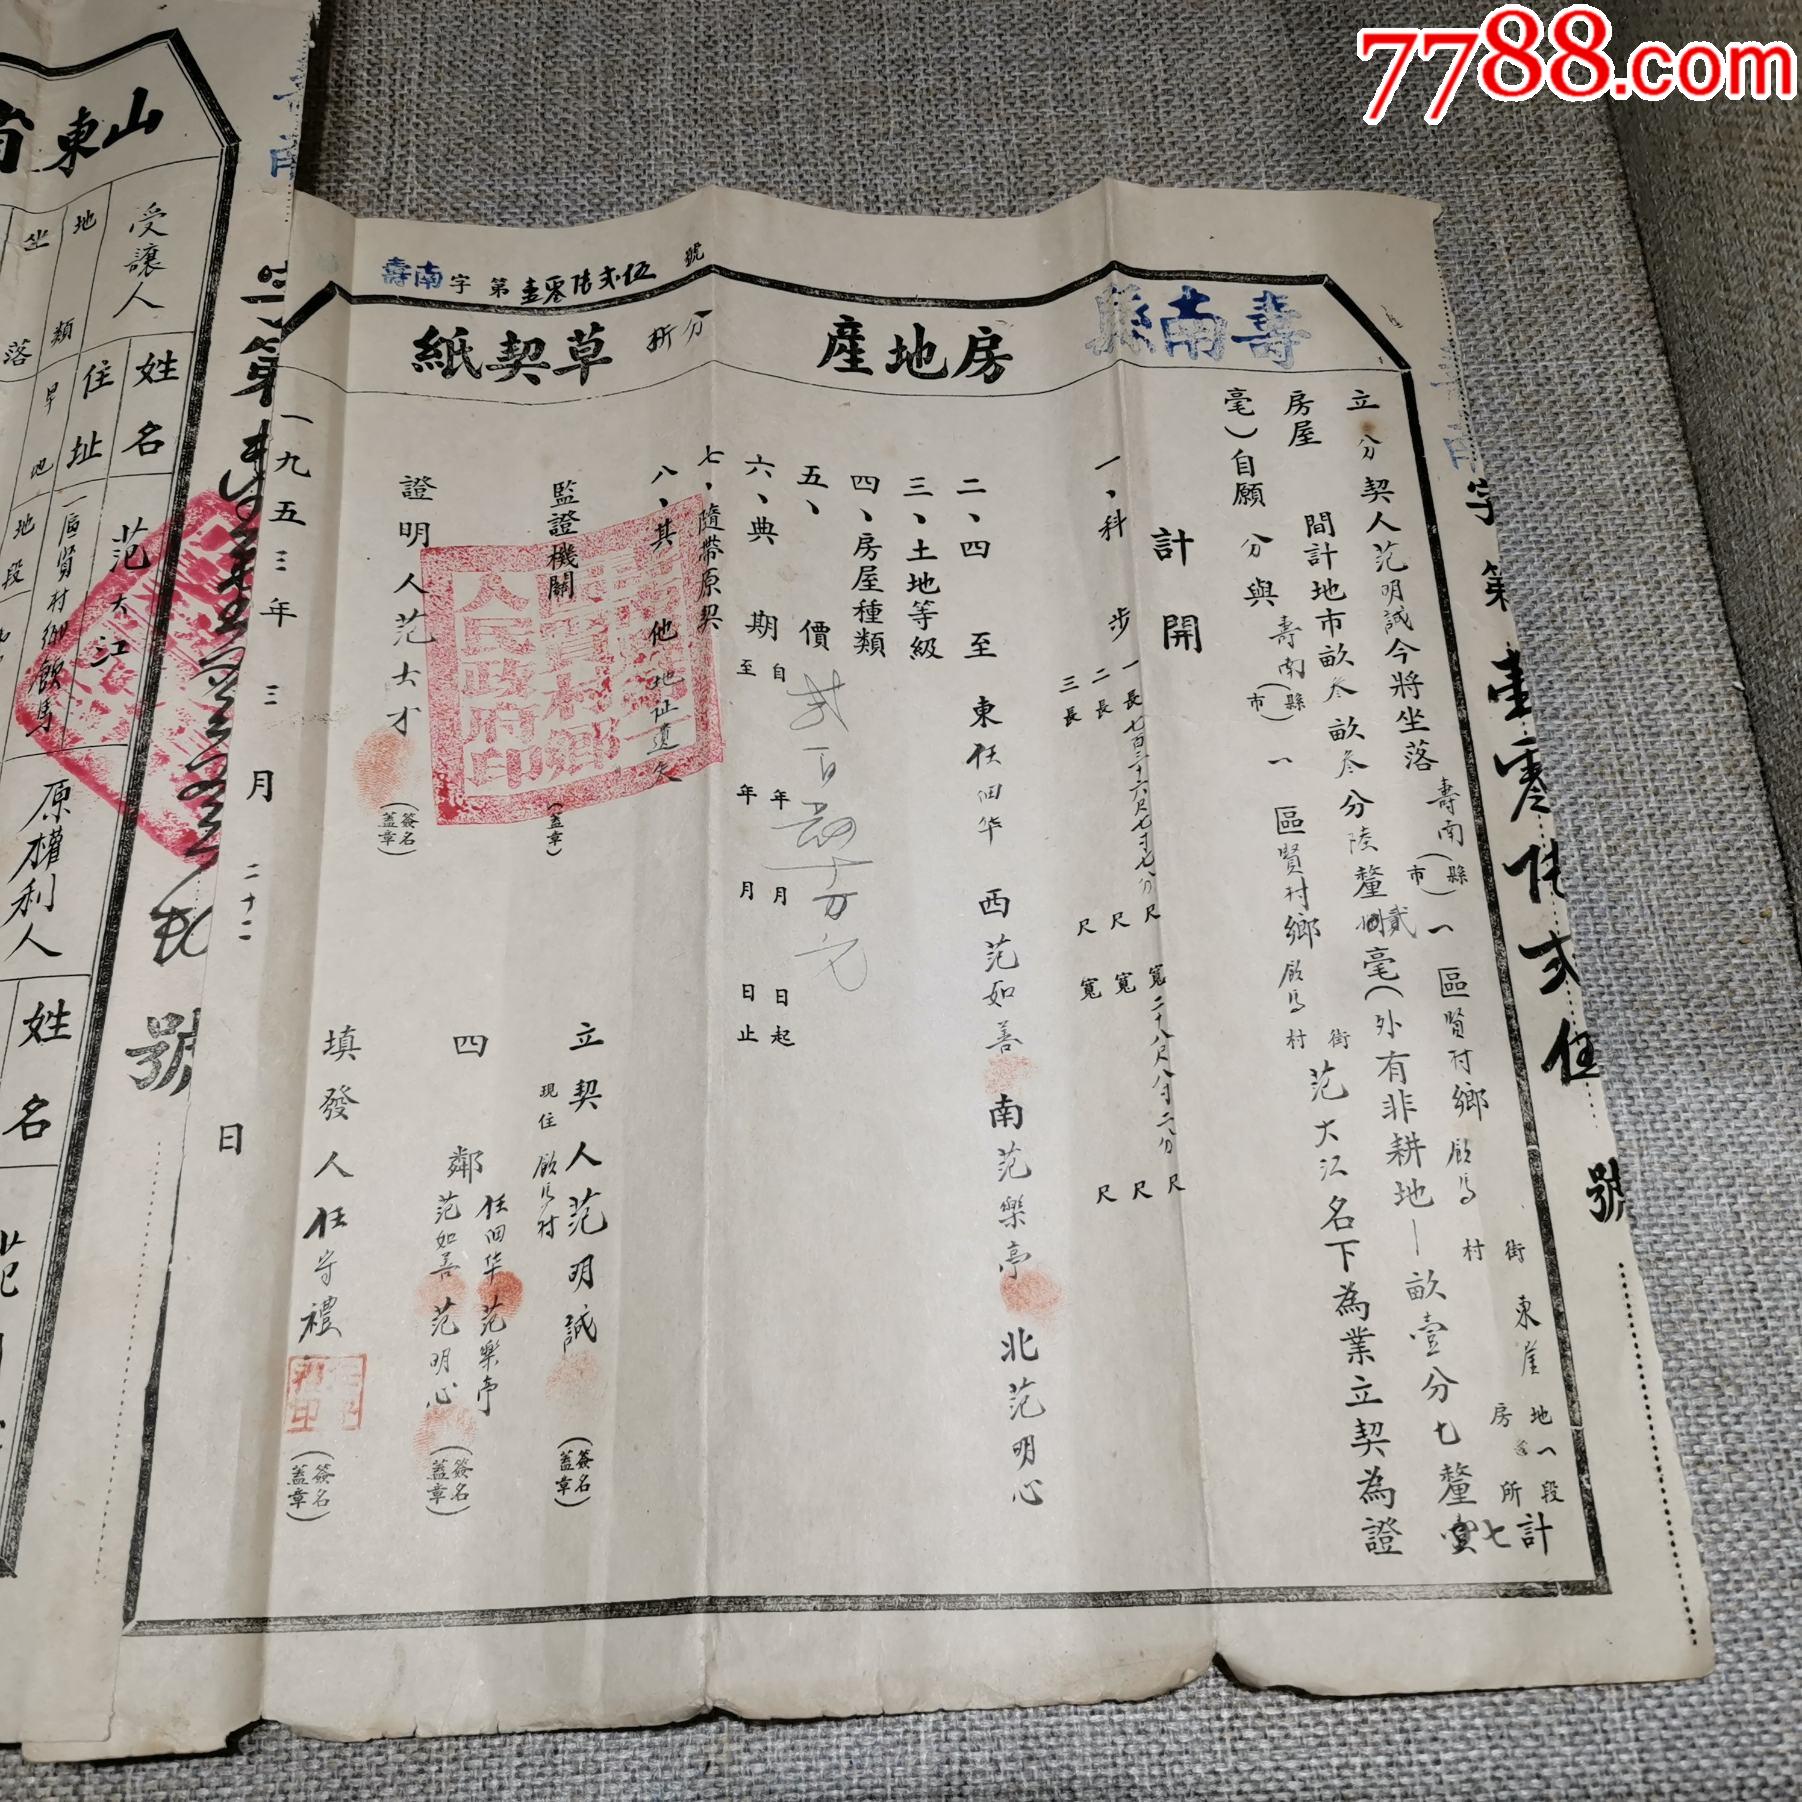 7788.com
壽南字第壹零陆弍伍號
壽南縣
房地產
分
折
草契紙
立分契人范明誠今將坐落壽南(縣市)一區賢村鄉飲馬街村東崖地一段房 所計七
房屋 間計地市畝叁畝叁分陸釐貳毫(外有非耕地一畝壹分七釐壹
毫)自願分與壽南(縣市)一區賢村鄉飲馬街村范大江名下為業立契為證
計開
一、科步
一長七百三十六尺七寸七分尺寬二十八尺八寸二分尺
二長 尺寬 尺
三長 尺寬 尺
二、四至 東任佃华 西范如善 南范樂亭 北范明心
三、土地等級
四、房屋種類
五、價
六、典期 自 年 月 日起 至 年 月 日止
七、隨帶原契
八、其他 地址遺失
監證機關 (蓋章)
賢村鄉人民政府印
證明人范士才 (簽名蓋章)
立契人范明誠 (簽名蓋章)
現住飲馬村
四鄰 任佃华 范樂亭 范如善 范明心 (簽名蓋章)
填發人任守禮 (簽名蓋章)
一九五三年三月二十二日
字第壹零陆弍伍號
字第
號
山東省
受讓人
姓名 范大江
住址 一區賢村鄉飲馬
原權利人
姓名
地類 旱地
坐落
地段